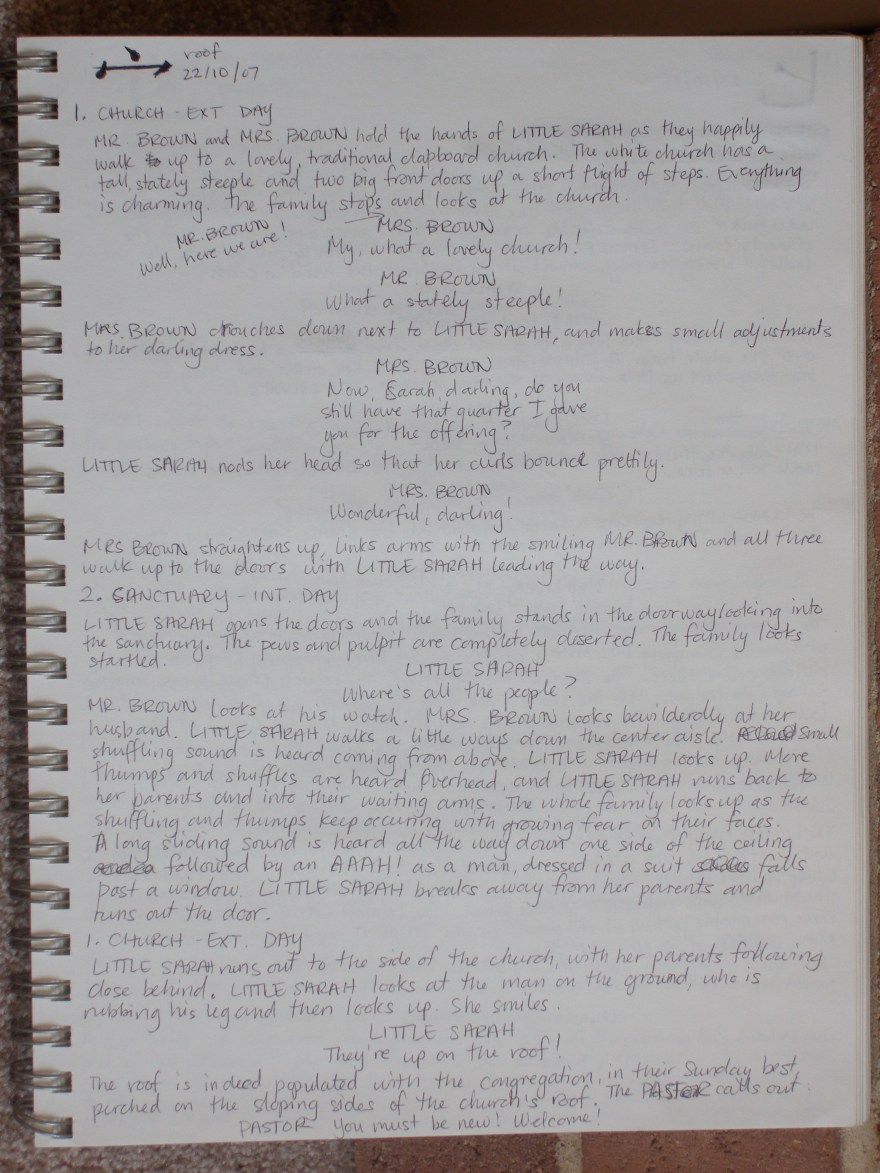 roof
22/10/07
1. CHURCH - EXT DAY
MR. BROWN and MRS. BROWN hold the hands of LITTLE SARAH as they happily
walk up to a lovely, traditional clapboard church. The white church has a
tall, stately steeple and two big front doors up a short flight of steps. Everything
is charming. The family stops and looks at the church.
MR. BROWN
Well, here we are!
MRS. BROWN
My, what a lovely church!
MR. BROWN
What a stately steeple!
MRS. BROWN crouches down next to LITTLE SARAH, and makes small adjustments
to her darling dress.
MRS. BROWN
Now, Sarah, darling, do you
still have that quarter I gave
you for the offering?
LITTLE SARAH nods her head so that her curls bounce prettily.
MRS. BROWN
Wonderful, darling!
MRS BROWN straightens up, links arms with the smiling MR. BROWN and all three
walk up to the doors with LITTLE SARAH leading the way.
2. SANCTUARY - INT. DAY
LITTLE SARAH opens the doors and the family stands in the doorway looking into
the sanctuary. The pews and pulpit are completely deserted. The family looks
startled.
LITTLE SARAH
Where's all the people?
MR. BROWN looks at his watch. MRS. BROWN looks bewilderdly at her
husband. LITTLE SARAH walks a little ways down the center aisle. small
shuffling sound is heard coming from above. LITTLE SARAH looks up. More
thumps and shuffles are heard overhead, and LITTLE SARAH runs back to
her parents and into their waiting arms. The whole family looks up as the
shuffling and thumps keep occuring with growing fear on their faces.
A long sliding sound is heard all the way down one side of the ceiling
followed by an AAAH! as a man, dressed in a suit falls
past a window. LITTLE SARAH breaks away from her parents and
runs out the door.
1. CHURCH - EXT. DAY
LITTLE SARAH runs out to the side of the church, with her parents following
close behind. LITTLE SARAH looks at the man on the ground, who is
rubbing his leg and then looks up. She smiles.
LITTLE SARAH
They're up on the roof!
The roof is indeed populated with the congregation, in their Sunday best,
perched on the sloping sides of the church's roof. The PASTOR calls out.
PASTOR You must be new! Welcome!